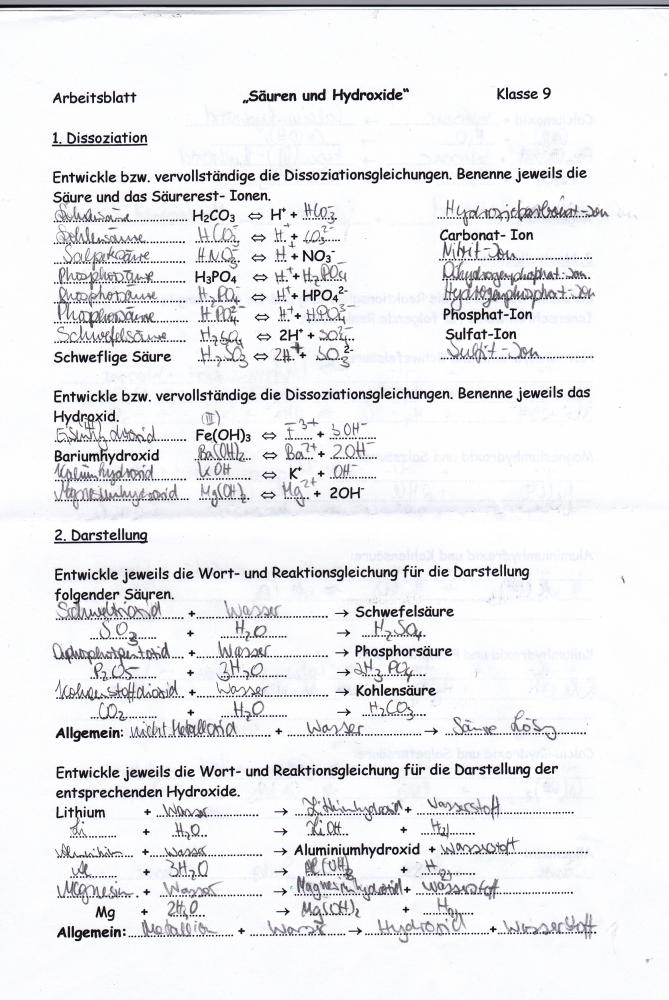 Arbeitsblatt „Säuren und Hydroxide“ Klasse 9
1. Dissoziation
Entwickle bzw. vervollständige die Dissoziationsgleichungen. Benenne jeweils die
Säure und das Säurerest- Ionen.
H₂CO₃ ⇔ H⁺ + HCO₃⁻
Kohlensäure HCO₃⁻ ⇔ H⁺ + CO₃²⁻ Carbonat- Ion
Salpetersäure ⇔ H⁺ + NO₃⁻ Nitrit-Ion
Phosphorsäure H3PO4 ⇔ H⁺ + H₂PO₄⁻ Dihydrogenphosphat-Ion
Phosphorsäure H₂PO₄⁻ ⇔ H⁺ + HPO₄²⁻ Hydrogenphosphat-Ion
Phosphorsäure HPO₄²⁻ ⇔ H⁺ + Phosphat-Ion
Schwefelsäure H₂SO₄ ⇔ 2H⁺ + SO₄²⁻ Sulfat-Ion
Schweflige Säure H₂SO₃ ⇔ 2H⁺ + SO₃²⁻ Sulfit-Ion
Entwickle bzw. vervollständige die Dissoziationsgleichungen. Benenne jeweils das
Hydroxid.
(III)
Fe(OH)₃ ⇔ + 3OH⁻
Bariumhydroxid Ba(OH)₂ ⇔ Ba²⁺ + 2OH⁻
KOH ⇔ K⁺ + OH⁻
Magnesiumhydroxid Mg(OH)₂ ⇔ Mg²⁺ + 2OH⁻
2. Darstellung
Entwickle jeweils die Wort- und Reaktionsgleichung für die Darstellung
folgender Säuren.
+ Wasser → Schwefelsäure
SO₃ + H₂O → H₂SO₄
Diphosphorpentoxid + Wasser → Phosphorsäure
P₂O₅ + 3H₂O → 2H₃PO₄
Kohlenstoffdioxid + Wasser → Kohlensäure
CO₂ + H₂O → H₂CO₃
Allgemein: nicht Metalloxid + Wasser → Säure
Entwickle jeweils die Wort- und Reaktionsgleichung für die Darstellung der
entsprechenden Hydroxide.
Lithium + Wasser → Lithiumhydroxid + Wasserstoff
Li + H₂O → LiOH + H₂
Aluminium + Wasser → Aluminiumhydroxid + Wasserstoff
+ 3H₂O → Al(OH)₃ + H₂
Magnesium + Wasser → Magnesiumhydroxid + Wasserstoff
Mg + 2H₂O → Mg(OH)₂ + H₂
Allgemein: + Wasser → Hydroxid + Wasserstoff